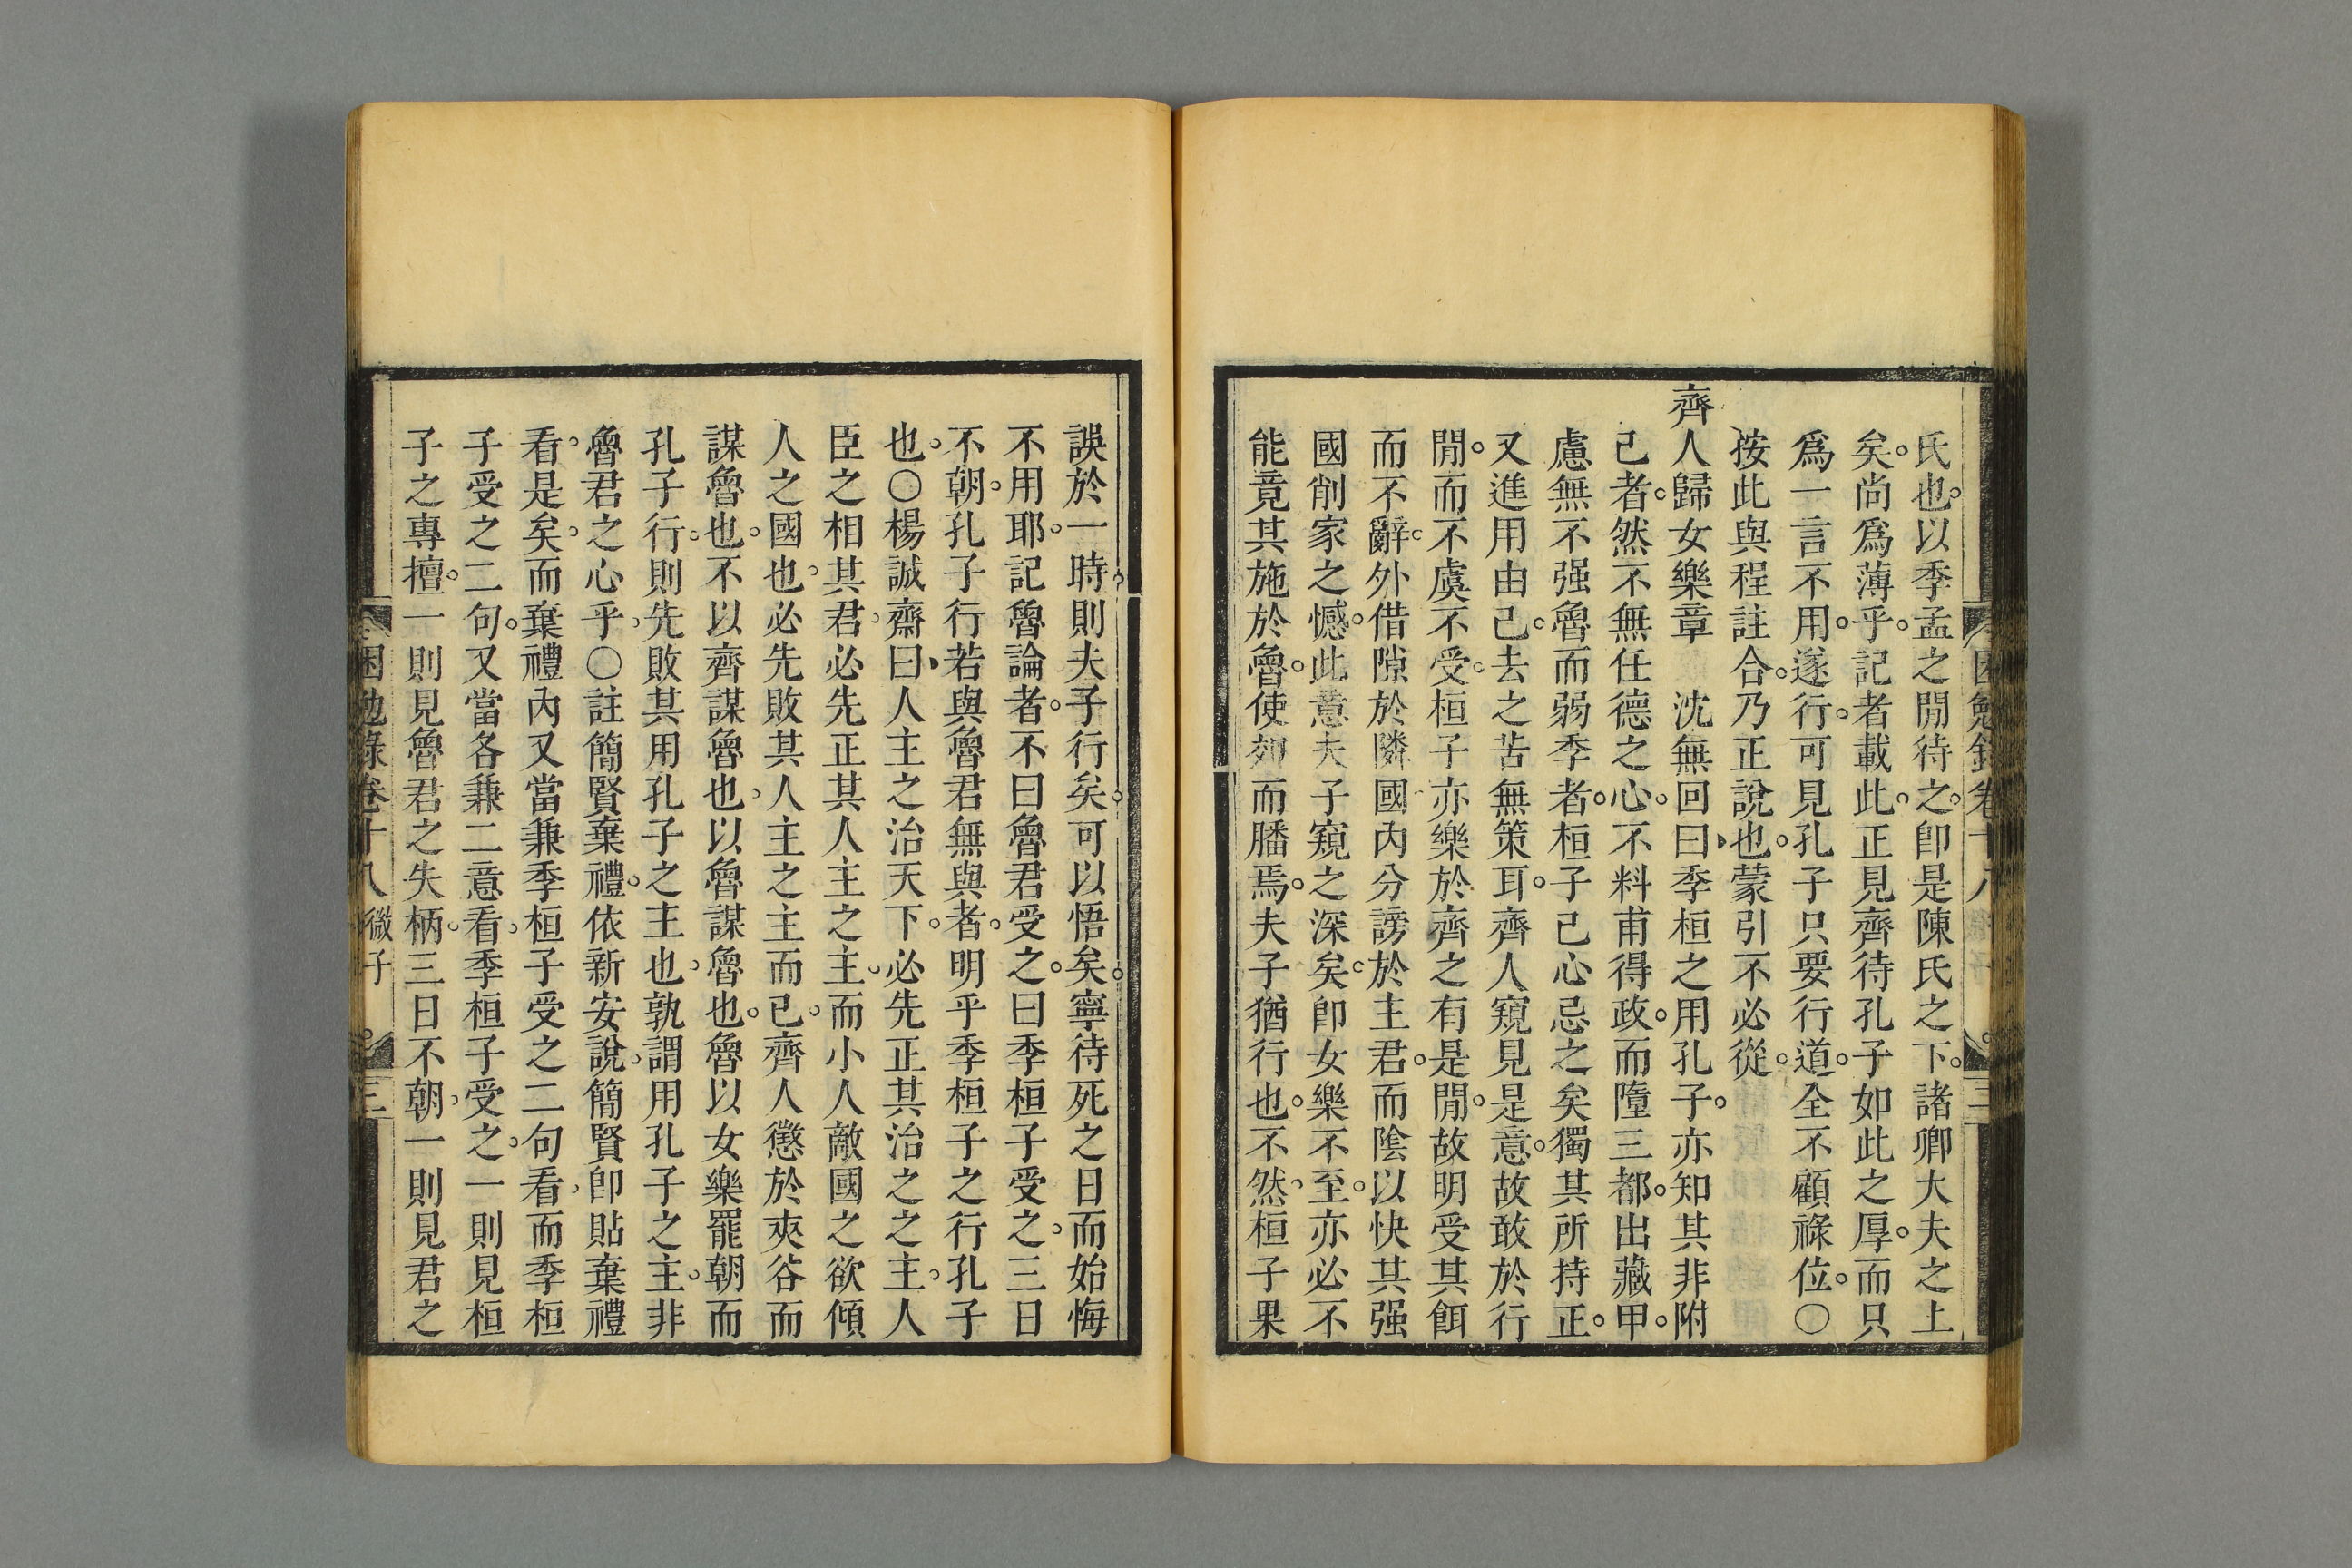 氏也以季孟之閒待之卽是陳氏之下諸卿大夫之上
矣尚爲薄乎記者載此正見齊待孔子如此之厚而只
爲一言不用遂行可見孔子只要行道全不顧祿位〇
按此與程註合乃正說也蒙引不必從
齊人歸女樂章　沈無回曰季桓之用孔子亦知其非附
己者然不無任德之心不料甫得政而墮三都出藏甲
慮無不强魯而弱季者桓子已心忌之矣獨其所持正
又進用由己去之苦無策耳齊人窺見是意故敢於行
閒而不虞不受桓子亦樂於齊之有是閒故明受其餌
而不辭外借隙於隣國內分謗於主君而陰以快其强
國削家之憾此意夫子窺之深矣卽女樂不至亦必不
能竟其施於魯使郊而膰焉夫子猶行也不然桓子果
誤於一時則夫子行矣可以悟矣寧待死之日而始悔
不用耶記魯論者不曰魯君受之曰季桓子受之三日
不朝孔子行若與魯君無與者明乎季桓子之行孔子
也〇楊誠齋曰人主之治天下必先正其治之之主人
臣之相其君必先正其人主之主而小人敵國之欲傾
人之國也必先敗其人主之主而已齊人懲於夾谷而
謀魯也不以齊謀魯也以魯謀魯也魯以女樂罷朝而
孔子行則先敗其用孔子之主也孰謂用孔子之主非
魯君之心乎〇註簡賢棄禮依新安說簡賢卽貼棄禮
看是矣而棄禮內又當兼季桓子受之二句看而季桓
子受之二句又當各兼二意看季桓子受之一則見桓
子之專擅一則見魯君之失柄三日不朝一則見君之
困勉錄卷十八 微子 三